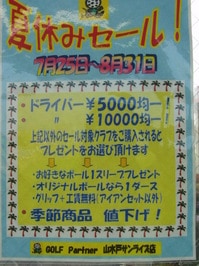 夏休みセール!
7月25日〜8月31日
・ドライバー ¥5000均一!
・ 〃 ¥10000均一!
上記以外のセール対象クラブをご購入されると
プレゼントをお選び頂けます
・お好きなボール1スリーブプレゼント
・オリジナルボールなら1ダース
・グリップ+工賃無料(アイアンセット以外)
・季節商品 値下げ!
GOLF Partner 山水戸サンライズ店